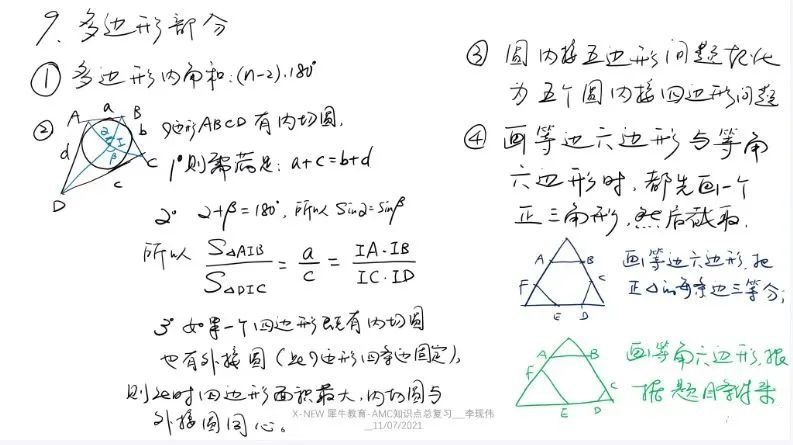 9、多边形部分
① 多边形内角和:(n-2)·180°
② A a B b I α β d c C D
四边形ABCD有内切圆,
1°则需满足:a+c=b+d
2° α+β=180°,所以 Sinα=Sinβ
所以 S△AIB/S△DIC = a/c = IA·IB/IC·ID
3°如果一个四边形既有内切圆
也有外接圆(此四边形四条边固定),
则此时四边形面积最大,内切圆与
外接圆同心。
③ 圆内接五边形问题转化
为五个圆内接四边形问题
④ 画等边六边形与等角
六边形时,都先画一个
正三角形,然后截取.
A B C D E F
画等边六边形,把
正△的每条边三等分;
A B C D E F
画等角六边形,根
据题目条件来
X-NEW 犀牛教育-AMC知识点总复习__李现伟
__11/07/2021